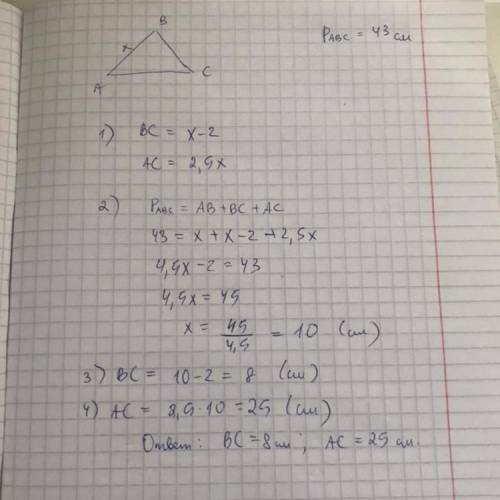 B
P_ABC = 43 см
x
A
C
1) BC = x-2
AC = 2,5x
2) P_ABC = AB+BC+AC
43 = x + x-2+2,5x
4,5x-2 = 43
4,5x = 45
x = 45/4,5 = 10 (см)
3) BC = 10-2 = 8 (см)
4) AC = 2,5·10 = 25 (см)
Ответ: BC = 8 см; AC = 25 см.